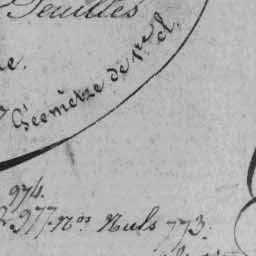 Feuilles
Géomètre de 1re cl.
974.
977. nos Nuls 773.